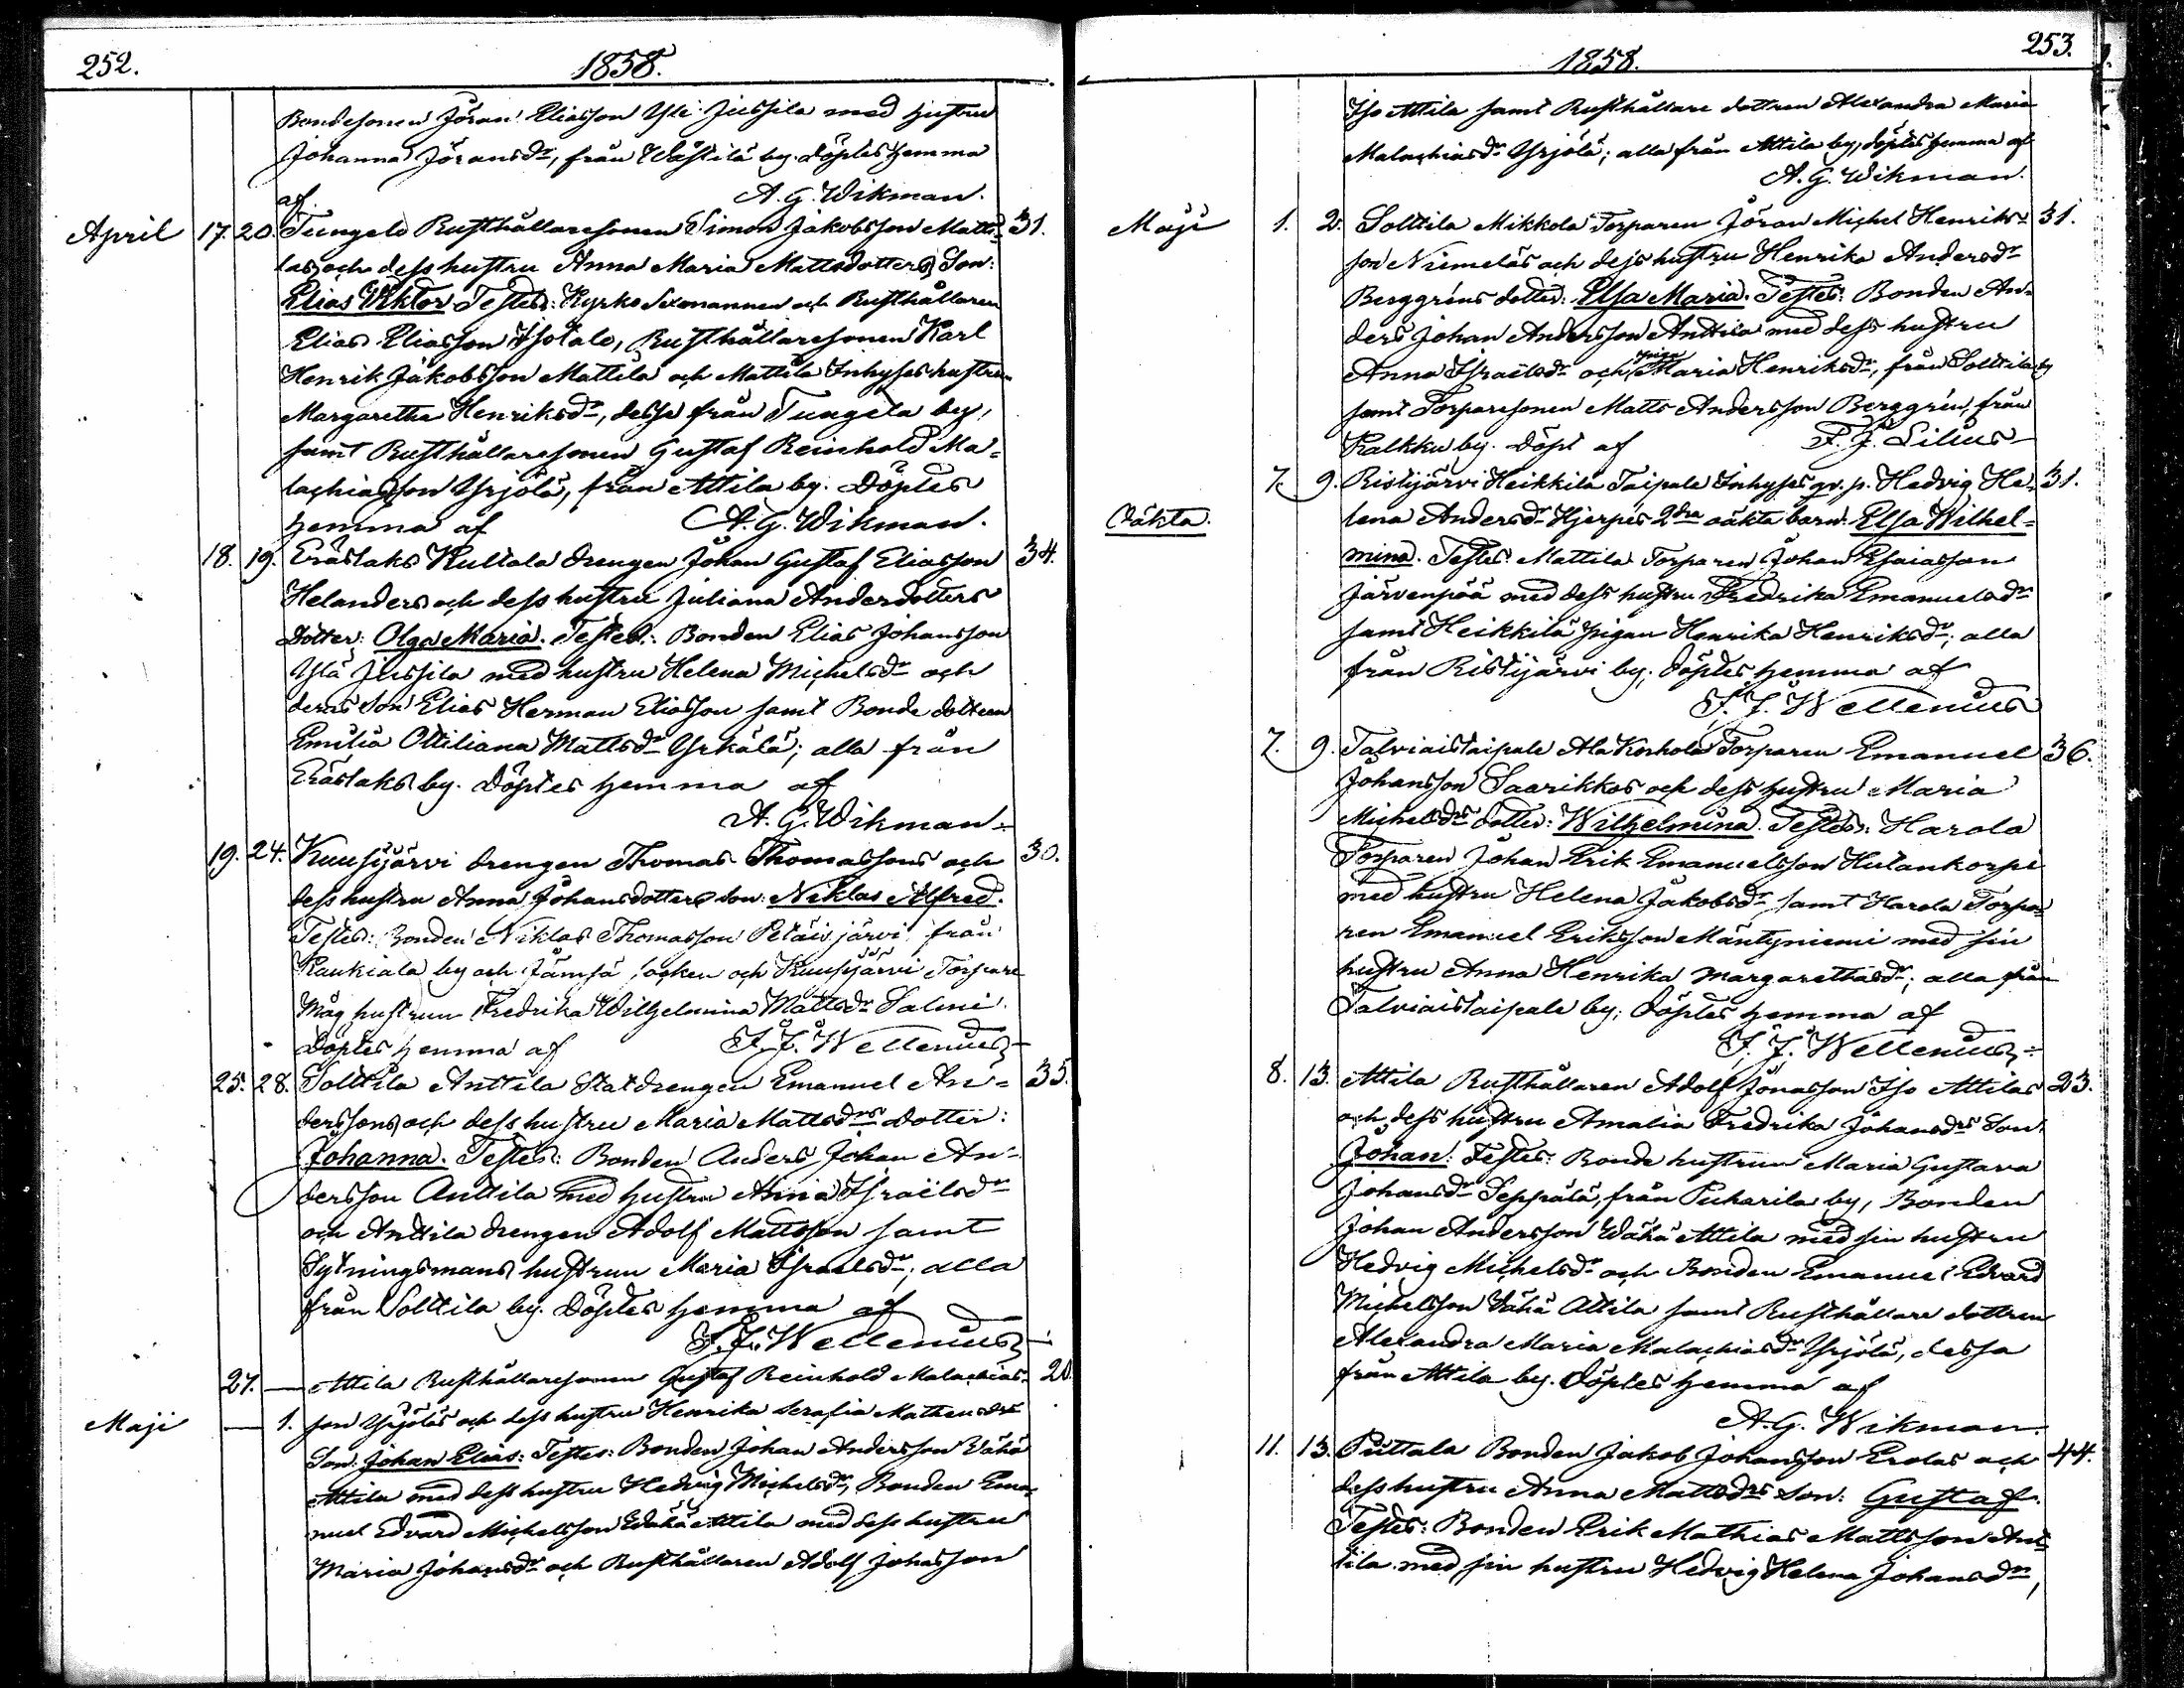 252. 1858.
Bondesonen Jöran Eliasson Yli Jussila med hustru
Johanna Jöransdr, från Wästilä by. Döptes hemma
af A. G. Wikman.
April 17. 20. Tungelo Rusthållaresonen Simon Jakobsson Matti- 31.
las och dess hustru Anna Maria Mattsdotters Son:
Elias Viktor. Testes: Kyrko Sexmannen och Rusthållaren
Elias Eliasson Isotalo, Rusthållaresonen Karl
Henrik Jakobsson Mattila och Mattila Inhyses hustrun
Margaretha Henriksdr, desse från Tungela by,
samt Rusthållaresonen Gustaf Reinhold Ma-
lachiasson Yrjölä, från Attila by. Döptes
hemma af A. G. Wikman.
18. 19. Eräslaks Kultala drengen Johan Gustaf Eliasson 34.
Helanders och dess hustru Juliana Andersdotters
Dotter: Olga Maria. Testes: Bonden Elias Johansson
Ylä Jussila med hustru Helena Michelsdr och
deras Son Elias Herman Eliasson samt Bonde dottren
Emilia Ottiliana Mattsdr Yrkölä; alla från
Eräslaks by. Döptes hemma af
A. G. Wikman
19. 24. Kuusjärvi drengen Thomas Thomassons och 30.
dess hustru Anna Johansdotters son: Niklas Alfred.
Testes: Bonden Niklas Thomasson Petäisjärvi från
Raukiala by och Jämsä socken och Kuusjärvi Torpare
Måg hustrun Fredrika Wilhelmina Mattsdr Salmi.
Döptes hemma af F. J. Wellenius
25. 28. Solttila Anttila Statdrengen Emanuel An- 35.
derssons och dess hustru Maria Mattsdrs dotter:
Johanna. Testes: Bonden Anders Johan An-
dersson Anttila med hustru Anna Israëlsdr
och Anttila drengen Adolf Mattsson samt
Sytningsmans hustrun Maria Israelsdr; alla
från Solttila by. Döptes hemma af
F. J. Wellenius
27. — Attila Rusthållaresonen Gustaf Reinhold Malachias- 20.
Maji — 1. son Yrjöläs och dess hustru Henrika Serafia Matheusdrs
Son: Johan Elias: Testes: Bonden Johan Andersson Wähä
Attila med dess hustru Hedvig Michelsdr, Bonden Ema-
nuel Edvard Michelsson Wähä Attila med dess hustru
Maria Johansdr och Rusthållaren Adolf Johasson
1858. 253.
Iso Attila samt Rusthållare dottren Alexandra Maria
Malachiasdr Yrjölä; alla från Attila by, döptes hemma af
A. G. Wikman.
Maji 1. 2. Solttila Mikkola Torparen Jöran Michel Henriks- 31.
son Niemeläs och dess hustru Henrika Andersdr
Berggréns dotter: Elsa Maria. Testes: Bonden An-
ders Johan Andersson Anttila med dess hustru
Anna Israëlsdr och pigan Maria Henriksdr, från Solttila by
samt Torparesonen Matts Andersson Berggrén, från
Kalkku by. Döpt af F. J. Lilius
7. 9. Ristijärvi Heikkilä Taipale Inhyses qv. p. Hedvig He- 31.
Oäkta. lena Andersdr Hjerpes 2dra oäkta barn: Elsa Wilhel-
mina. Testes: Mattila Torparen Johan Esaiasson
Järvenpää med dess hustru Fredrika Emanuelsdr
samt Heikkilä pigan Henrika Henriksdr; alla
från Ristijärvi by; Döptes hemma af
F. J. Wellenius
7. 9. Talviaistaipale Ala Korhola Torparen Emanuel 36.
Johansson Saarikkos och dess hustru Maria
Michelsdrs dotter: Wilhelmina. Testes: Harola
Torparen Johan Erik Emanuelsson Hutankorpi
med hustru Helena Jakobsdr samt Harola Torpa-
ren Emanuel Eriksson Mäntyniemi med sin
hustru Anna Henrika Margarethasdr; alla från
Talviaistaipale by; Döptes hemma af
F. J. Wellenius
8. 13. Attila Rusthållaren Adolf Jonasson Iso Attilas 23.
och dess hustru Amalia Fredrika Johansdrs Son
Johan: Testes: Bonde hustrun Maria Gustava
Johansdr Seppälä, från Puharila by, Bonden
Johan Andersson Wähä Attila med sin hustru
Hedvig Michelsdr och Bonden Emanuel Edvard
Michelsson Wähä Attila samt Rusthållare dottren
Alexandra Maria Malachiasdr Yrjölä, dessa
från Attila by. Döptes hemma af
A. G. Wikman.
11. 13. Puttala Bonden Jakob Johansson Erolas och 44.
dess hustru Anna Mattsdrs Son: Gustaf.
Testes: Bonden Erik Mathias Mattsson Ant-
tila med sin hustru Hedvig Helena Johansdr,